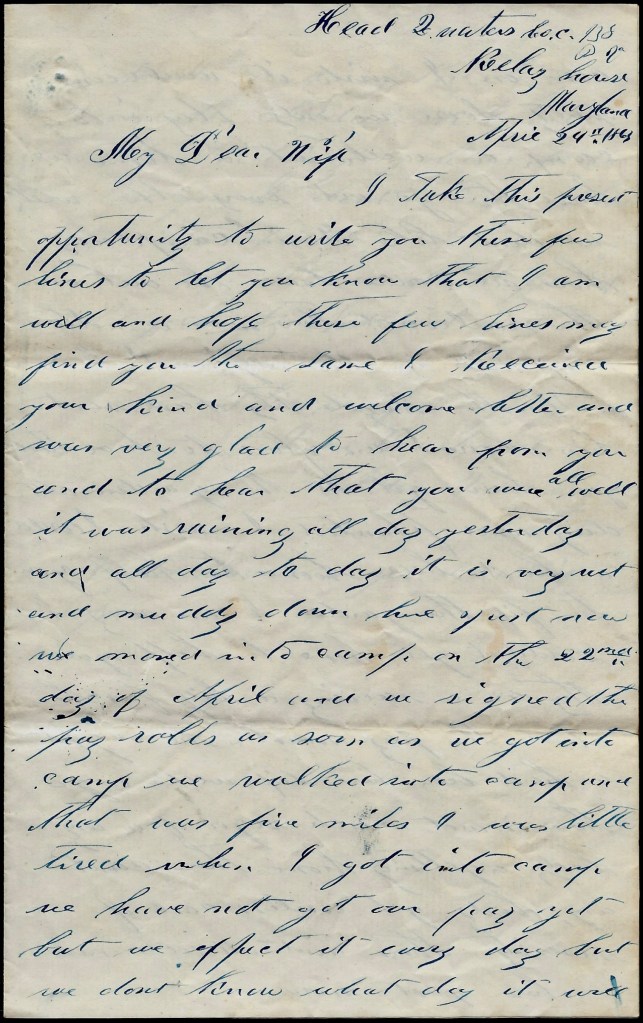 Head Quaters Co. C. 138
Relay house
Maryland
April 24th
My Dear Wife
I take this present
opportunity to write you these few
lines to let you know that I am
well and hope these few lines may
find you the same I Received
your kind and welcome letter and
was very glad to hear from you
and to hear that you were all well
it was raining all day yesterday
and all day to day it is very wet
and muddy down here just now
we moved into camp on the 22nd
day of April and we signed the
pay rolls as soon as we got into
camp we walked into camp and
that was five miles I was little
tired when I got into camp
we have not got our pay yet
but we expect it every day but
we dont know what day it will